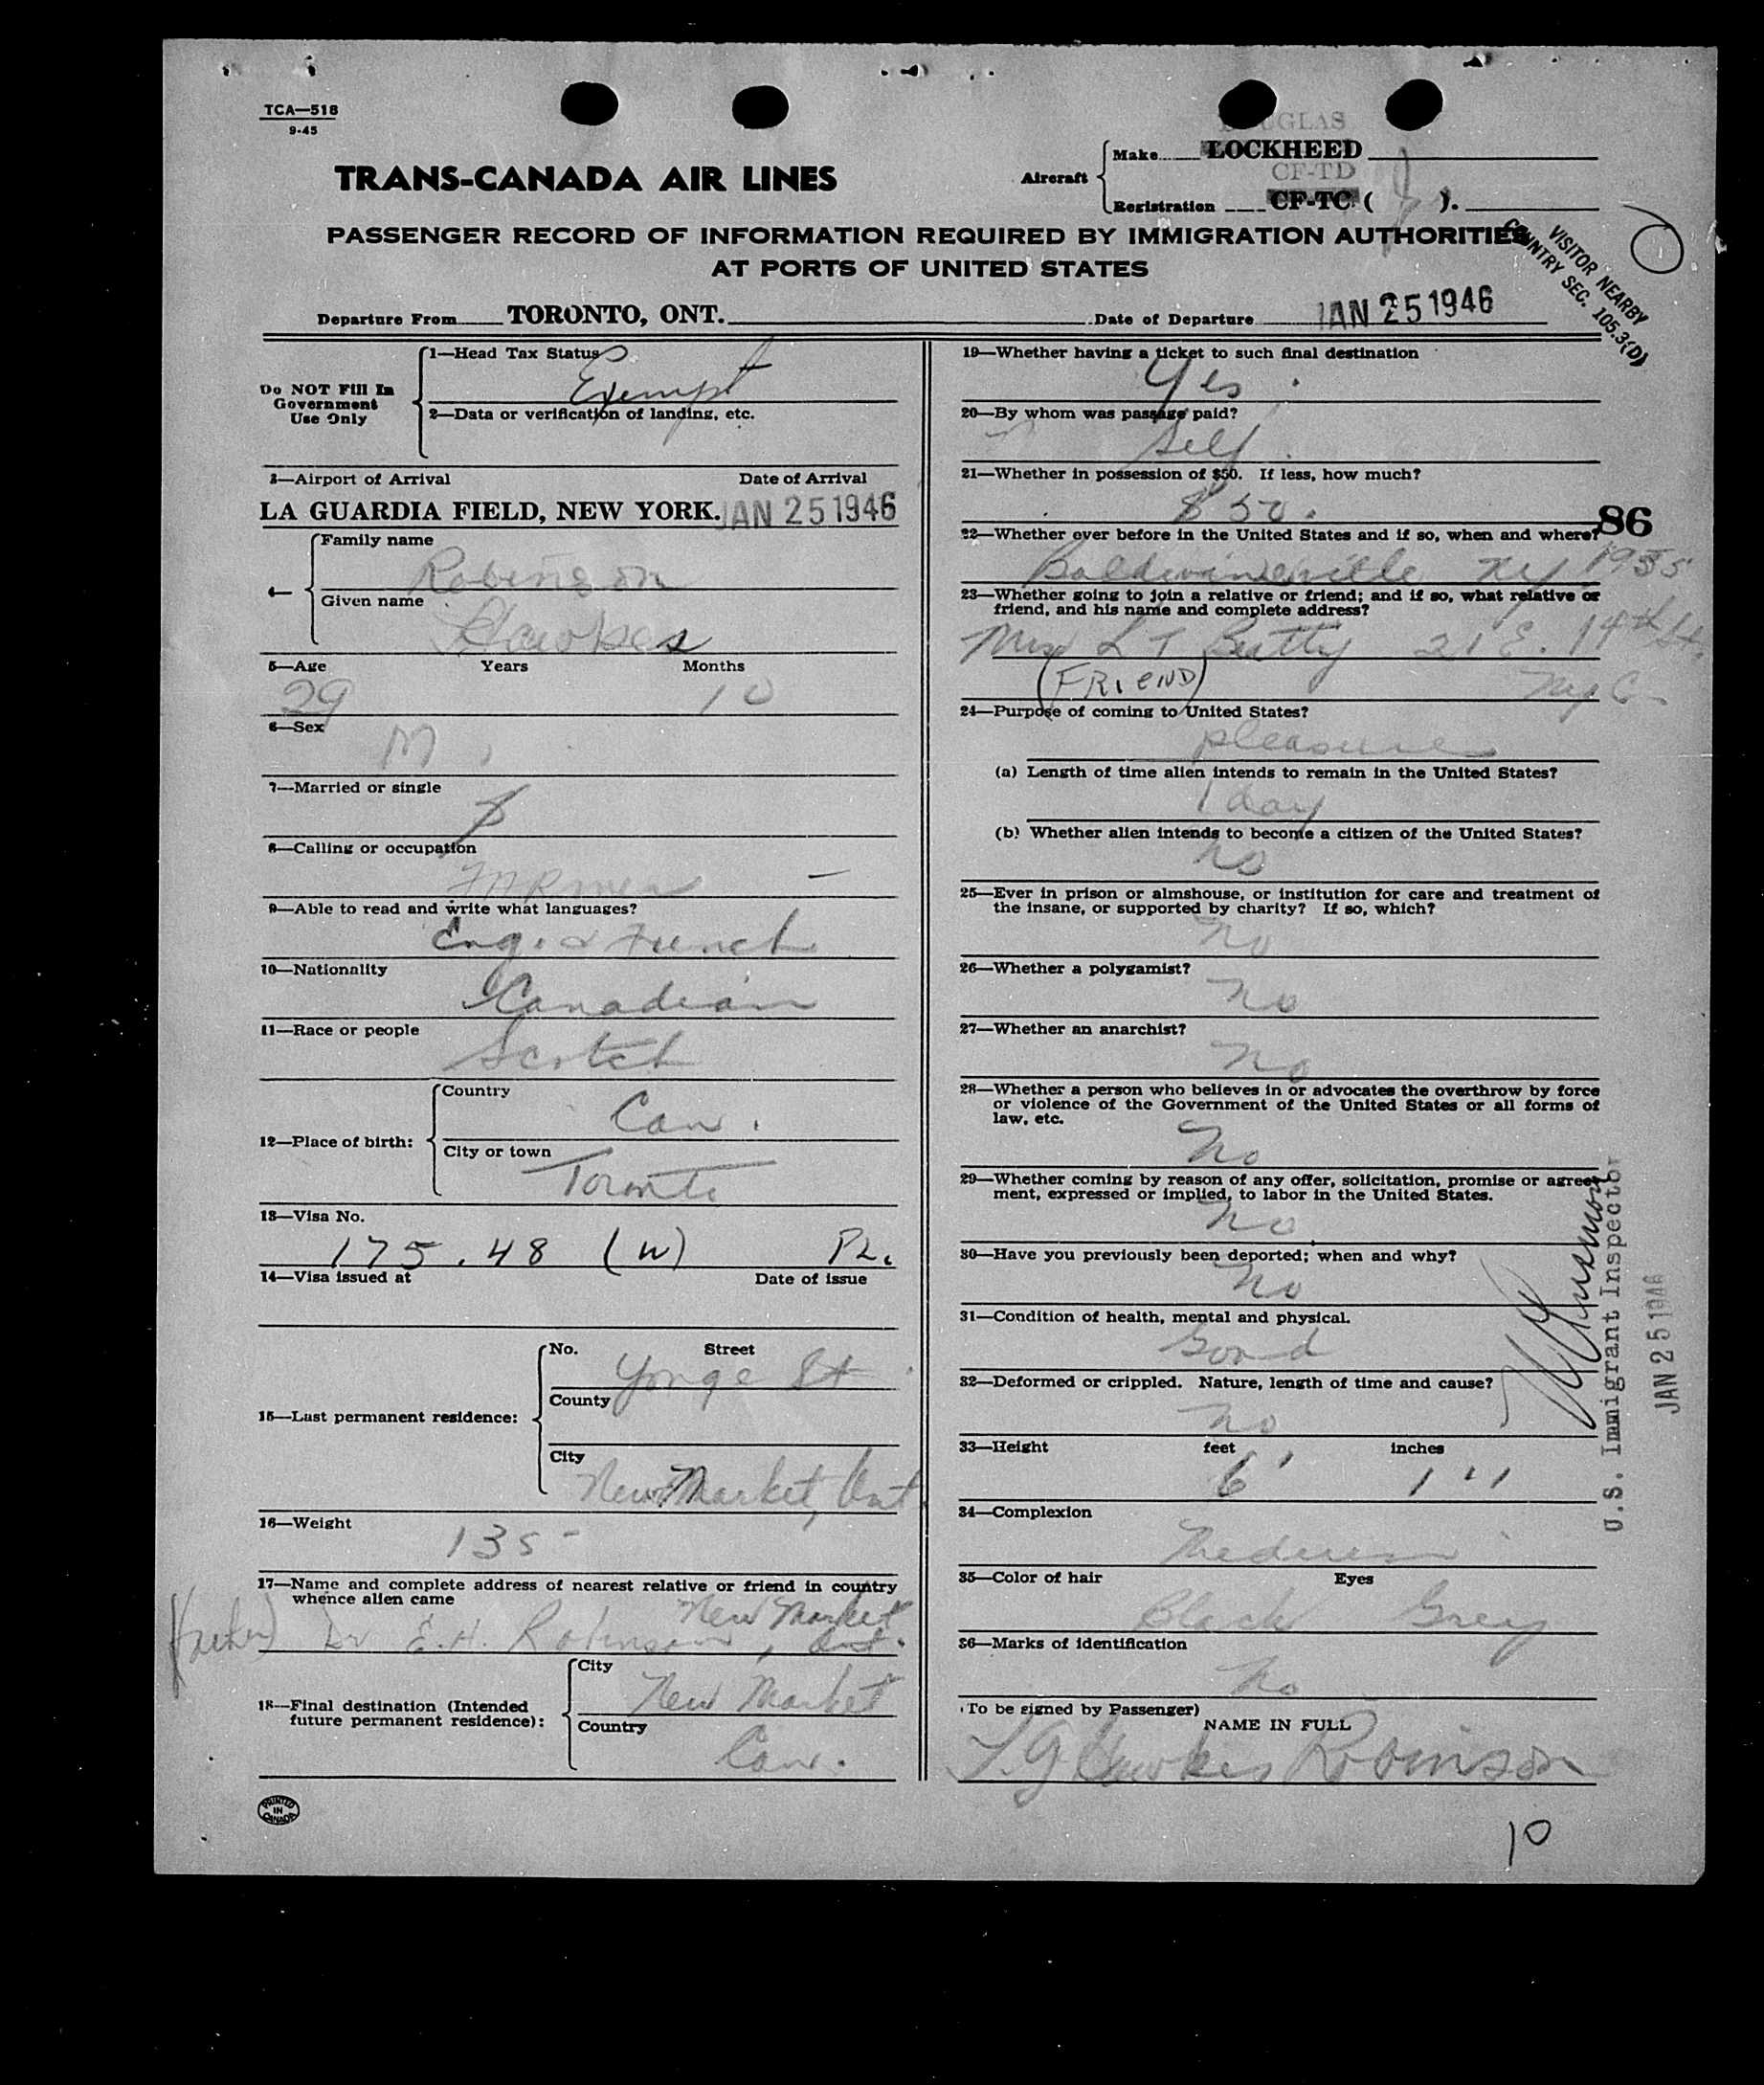 TCA—518
9-45
TRANS-CANADA AIR LINES
DOUGLAS
Aircraft
Make LOCKHEED
CF-TD
Registration CF-TC ( ).
PASSENGER RECORD OF INFORMATION REQUIRED BY IMMIGRATION AUTHORITIES
AT PORTS OF UNITED STATES
VISITOR NEARBY
COUNTRY SEC. 105.3(D)
Departure From TORONTO, ONT. Date of Departure JAN 25 1946
Do NOT Fill In
Government
Use Only
1—Head Tax Status
Exempt
2—Data or verification of landing, etc.
3—Airport of Arrival Date of Arrival
LA GUARDIA FIELD, NEW YORK. JAN 25 1946
4—
Family name
Robinson
Given name
Hawkes
5—Age Years Months
29 10
6—Sex
M
7—Married or single
S
8—Calling or occupation
FARmer
9—Able to read and write what languages?
Eng. & French
10—Nationality
Canadian
11—Race or people
Scotch
12—Place of birth:
Country
Can.
City or town
Toronto
13—Visa No.
175.48 (W) PL.
14—Visa issued at Date of issue
15—Last permanent residence:
No. Street
Yonge St
County
City
New Market, Ont
16—Weight
135
17—Name and complete address of nearest relative or friend in country
whence alien came
New Market
(father) Dr E.H. Robinson, Ont.
18—Final destination (Intended
future permanent residence):
City
New Market
Country
Can.
PRINTED
IN
CANADA
19—Whether having a ticket to such final destination
Yes.
20—By whom was passage paid?
Self.
21—Whether in possession of $50. If less, how much?
$50.
86
22—Whether ever before in the United States and if so, when and where?
Baldwinsville NY 1935
23—Whether going to join a relative or friend; and if so, what relative or
friend, and his name and complete address?
L T Beatty 21 E. 14th St.
(FRIEND) NYC
24—Purpose of coming to United States?
pleasure
(a) Length of time alien intends to remain in the United States?
1 day
(b) Whether alien intends to become a citizen of the United States?
no
25—Ever in prison or almshouse, or institution for care and treatment of
the insane, or supported by charity? If so, which?
no
26—Whether a polygamist?
no
27—Whether an anarchist?
no
28—Whether a person who believes in or advocates the overthrow by force
or violence of the Government of the United States or all forms of
law, etc.
No
29—Whether coming by reason of any offer, solicitation, promise or agree-
ment, expressed or implied, to labor in the United States.
no
30—Have you previously been deported; when and why?
no
31—Condition of health, mental and physical.
Good
32—Deformed or crippled. Nature, length of time and cause?
no
33—Height feet inches
6' 1''
34—Complexion
Medium
35—Color of hair Eyes
Black Grey
36—Marks of identification
No
(To be signed by Passenger)
NAME IN FULL
Hawkes Robinson
U.S. Immigrant Inspector
JAN 25 1946
10